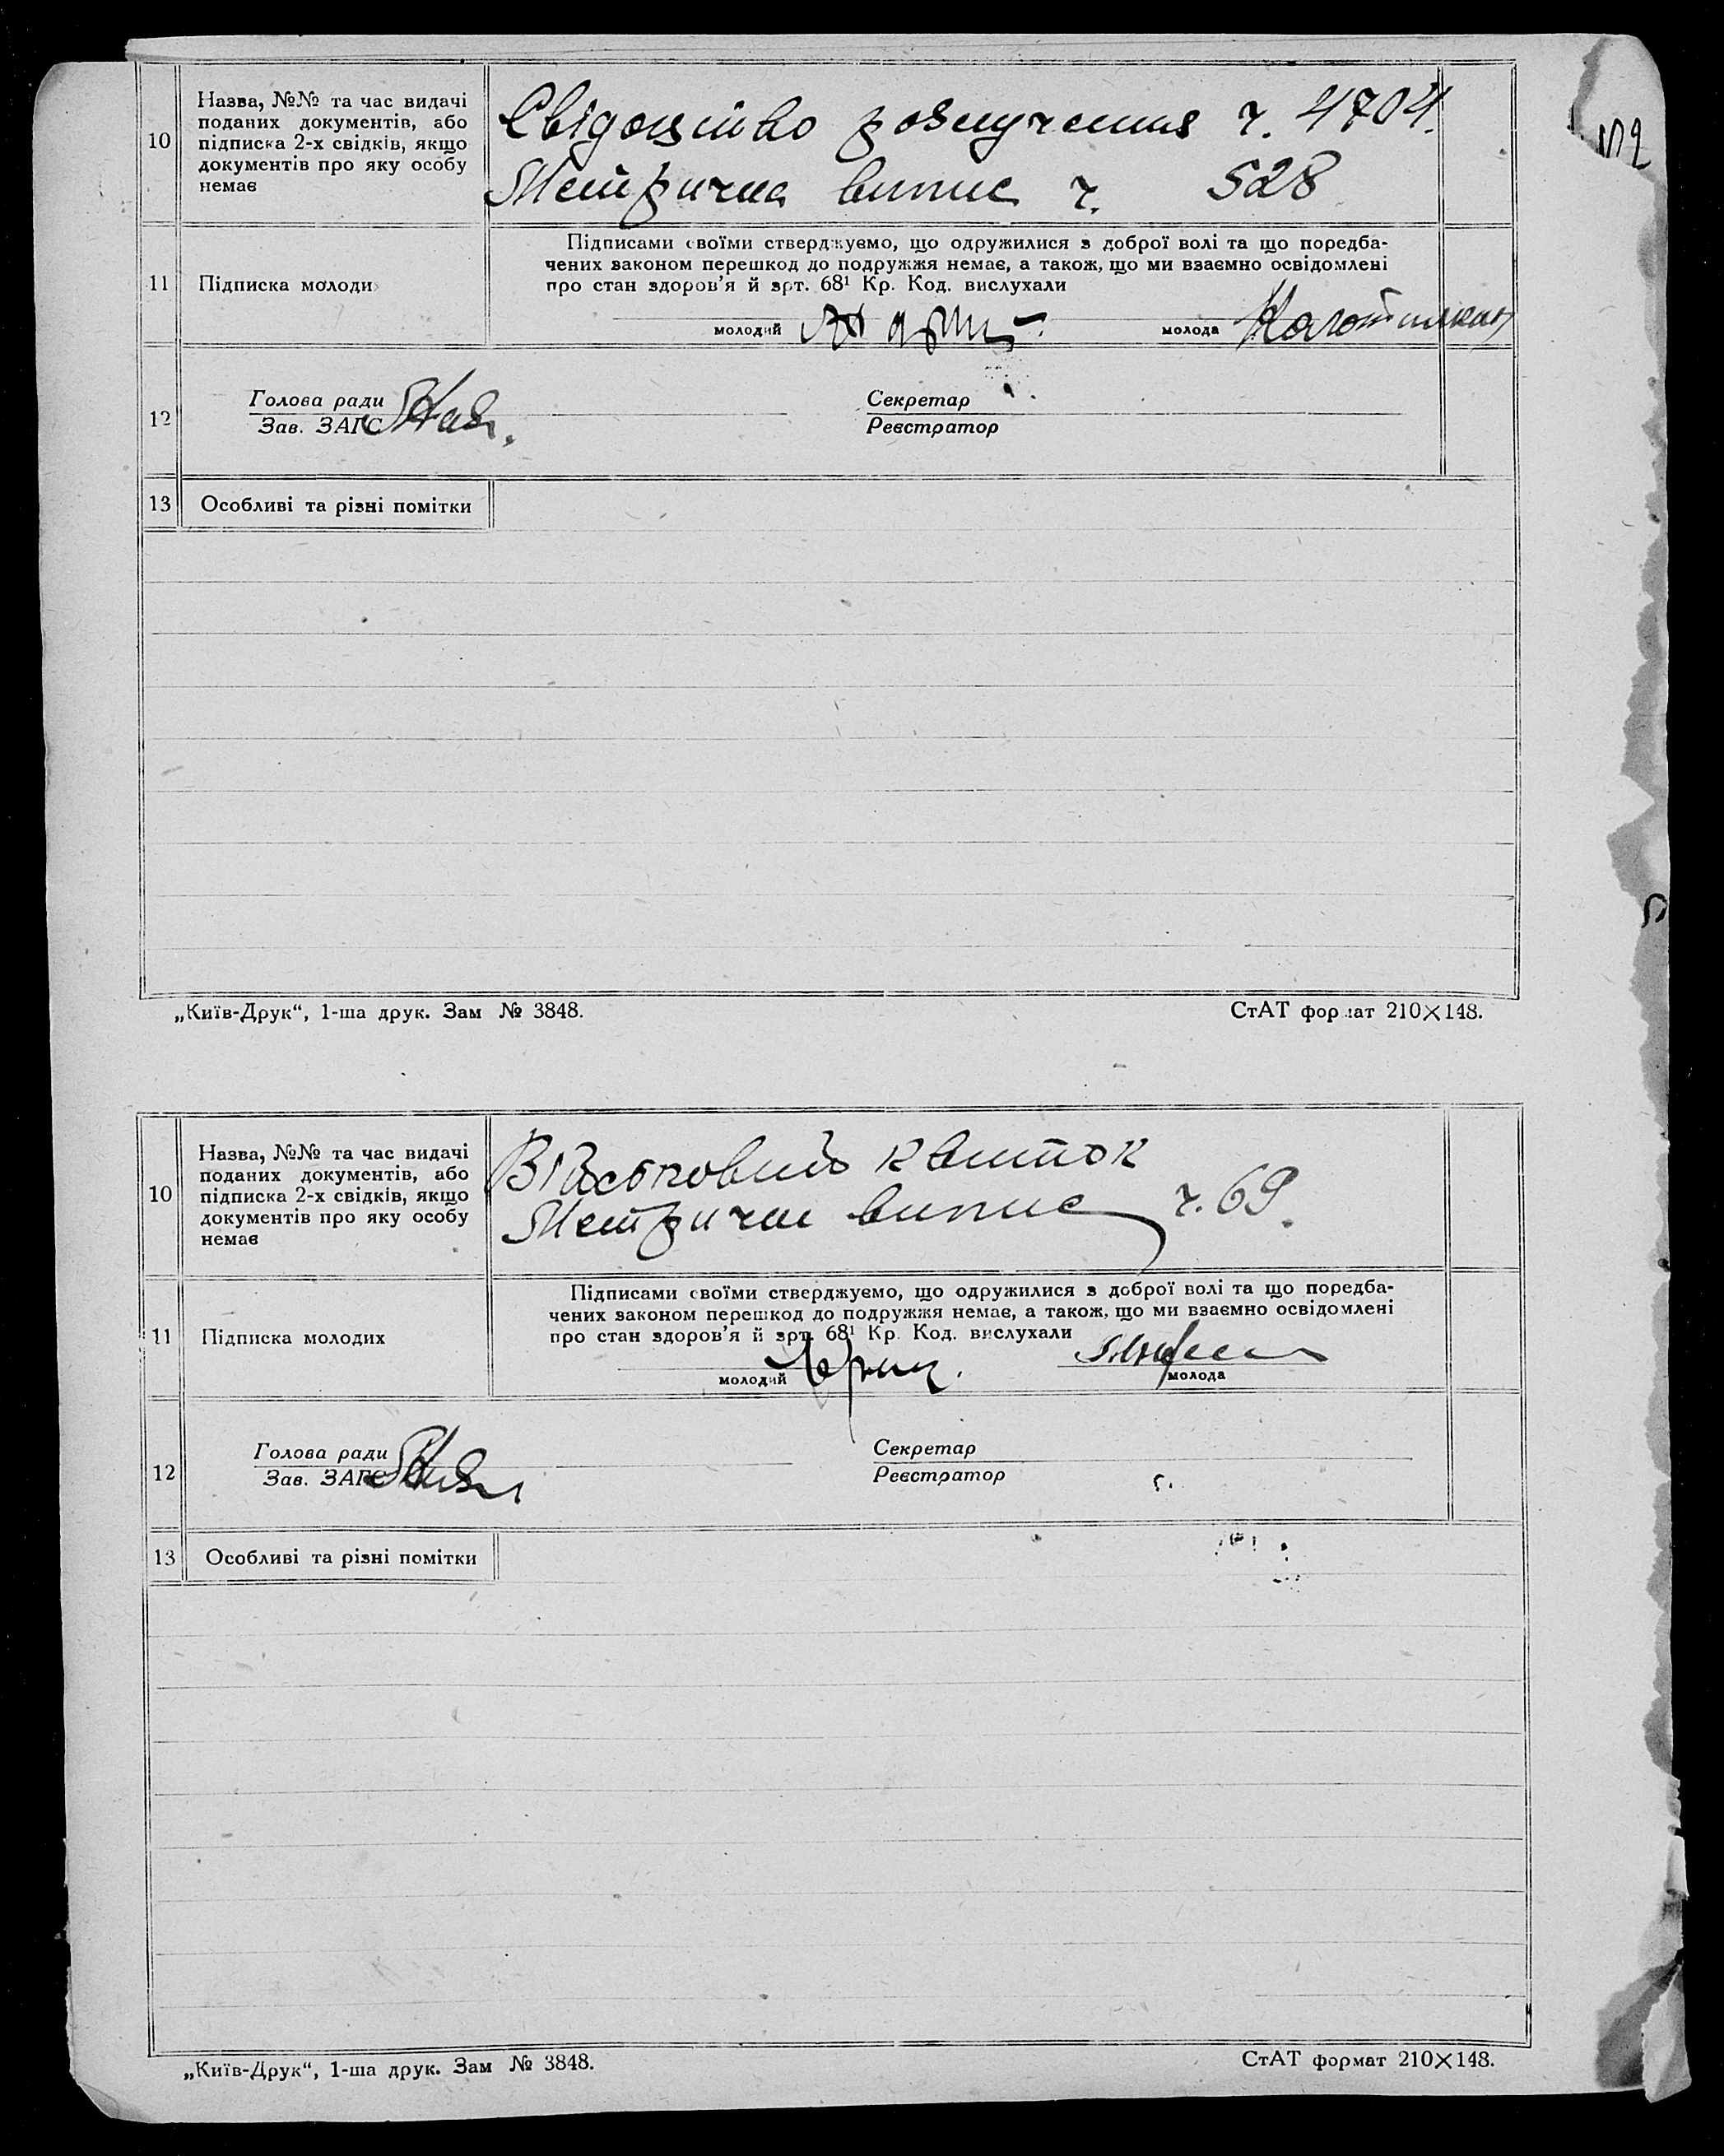 10
Назва, №№ та час видачі
поданих документів, або
підписка 2-х свідків, якщо
документів про яку особу
немає
Свідоцтво розлучения ч. 4704.
Метрична випис ч. 528
11
Підписка молоди
Підписами своїми стверджуємо, що одружилися з доброї волі та що поредба-
чених законом перешкод до подружжя немає, а також, що ми взаємно освідомлені
про стан здоров'я й зрт. 68¹ Кр. Код. вислухали
молодий
молода
12
Голова ради
Зав. ЗАГС
Секретар
Реєстратор
13
Особливі та різні помітки
„Київ-Друк“, 1-ша друк. Зам № 3848.
СтАТ формат 210×148.
10
Назва, №№ та час видачі
поданих документів, або
підписка 2-х свідків, якщо
документів про яку особу
немає
Військовий квиток
Метричн випис ч. 69.
11
Підписка молодих
Підписами своїми стверджуємо, що одружилися з доброї волі та що поредба-
чених законом перешкод до подружжя немає, а також, що ми взаємно освідомлені
про стан здоров'я й зрт. 68¹ Кр. Код. вислухали
молодий
молода
12
Голова ради
Зав. ЗАГС
Секретар
Реєстратор
13
Особливі та різні помітки
„Київ-Друк“, 1-ша друк. Зам № 3848.
СтАТ формат 210×148.